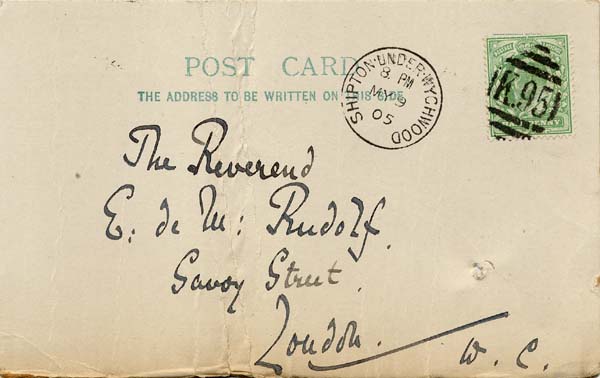 POST CARD
THE ADDRESS TO BE WRITTEN ON THIS SIDE.
SHIPTON·UNDER·WYCHWOOD
8. PM
MY 9
05
K.95
PENNY
The Reverend
E. de M: Rudolf.
Savoy Street.
London.
W. C.